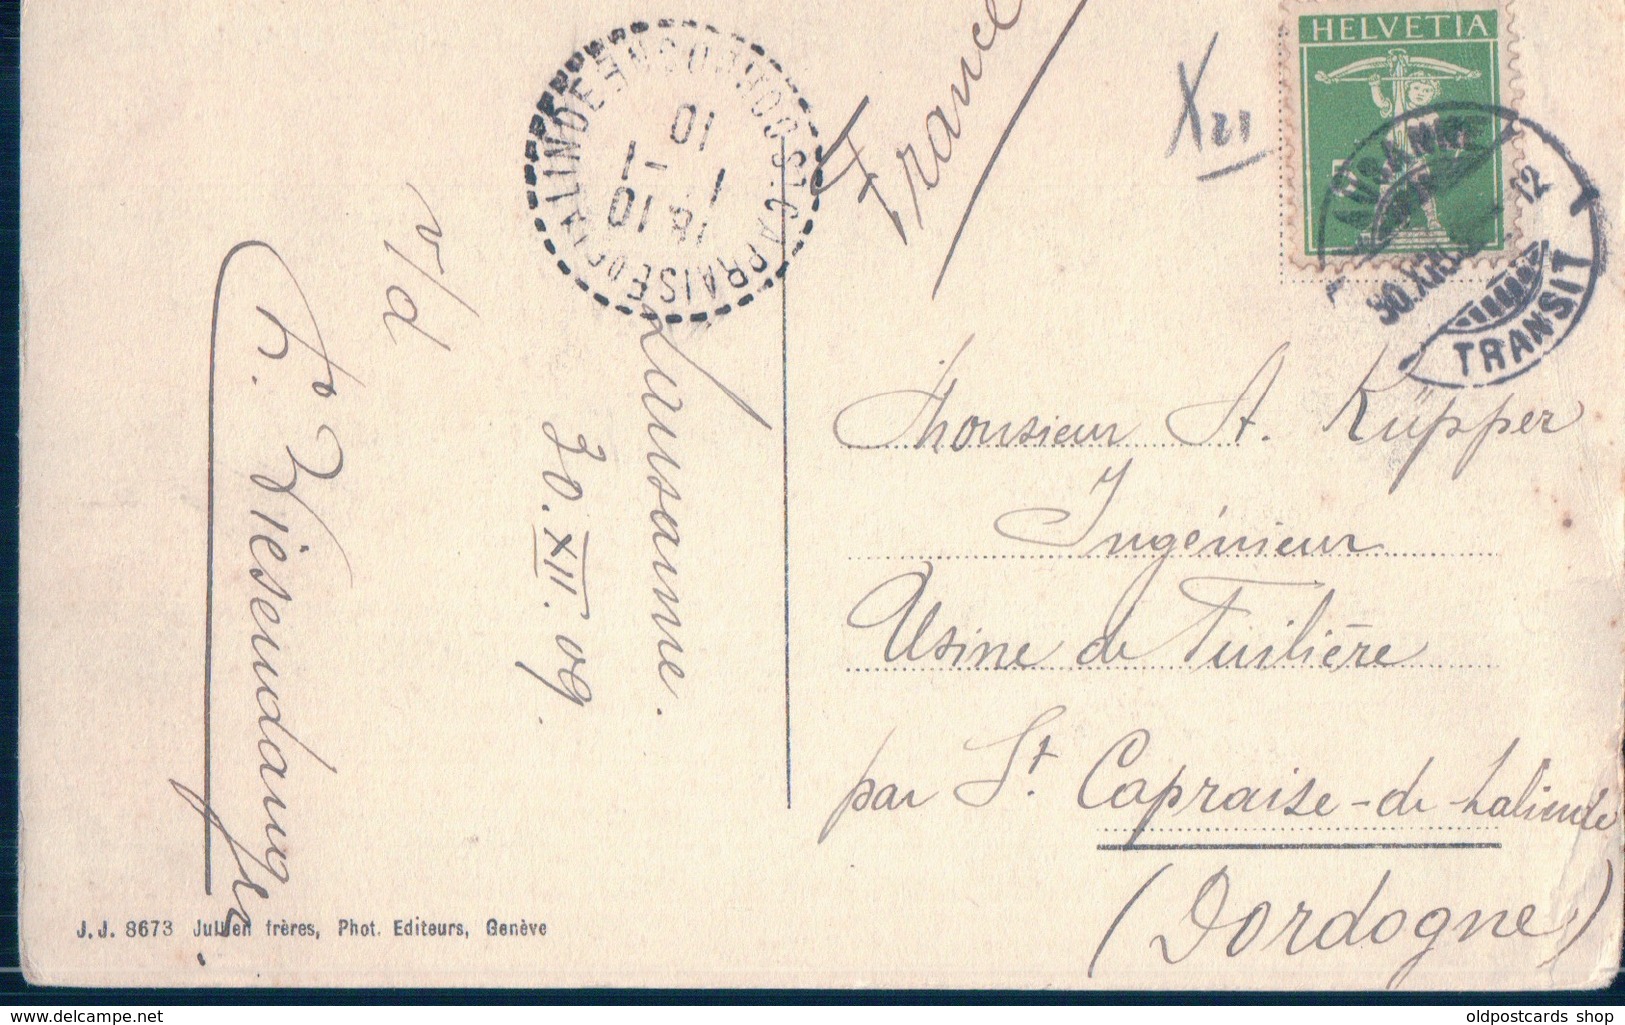 France
HELVETIA
LAUSANNE
30.XII.09 - 12
TRANSIT
10
1 - 1
10
ST CAPRAISE DE LALINDE
DORDOGNE
Lausanne.
30.XII.09.
v/d
Wiesendanger
Monsieur A. Küpper
Ingénieur
Usine de Tuilière
par St. Capraise-de-Lalinde
(Dordogne)
J.J. 8673 Jullien frères, Phot. Editeurs, Genève
www.delcampe.net
oldpostcards shop